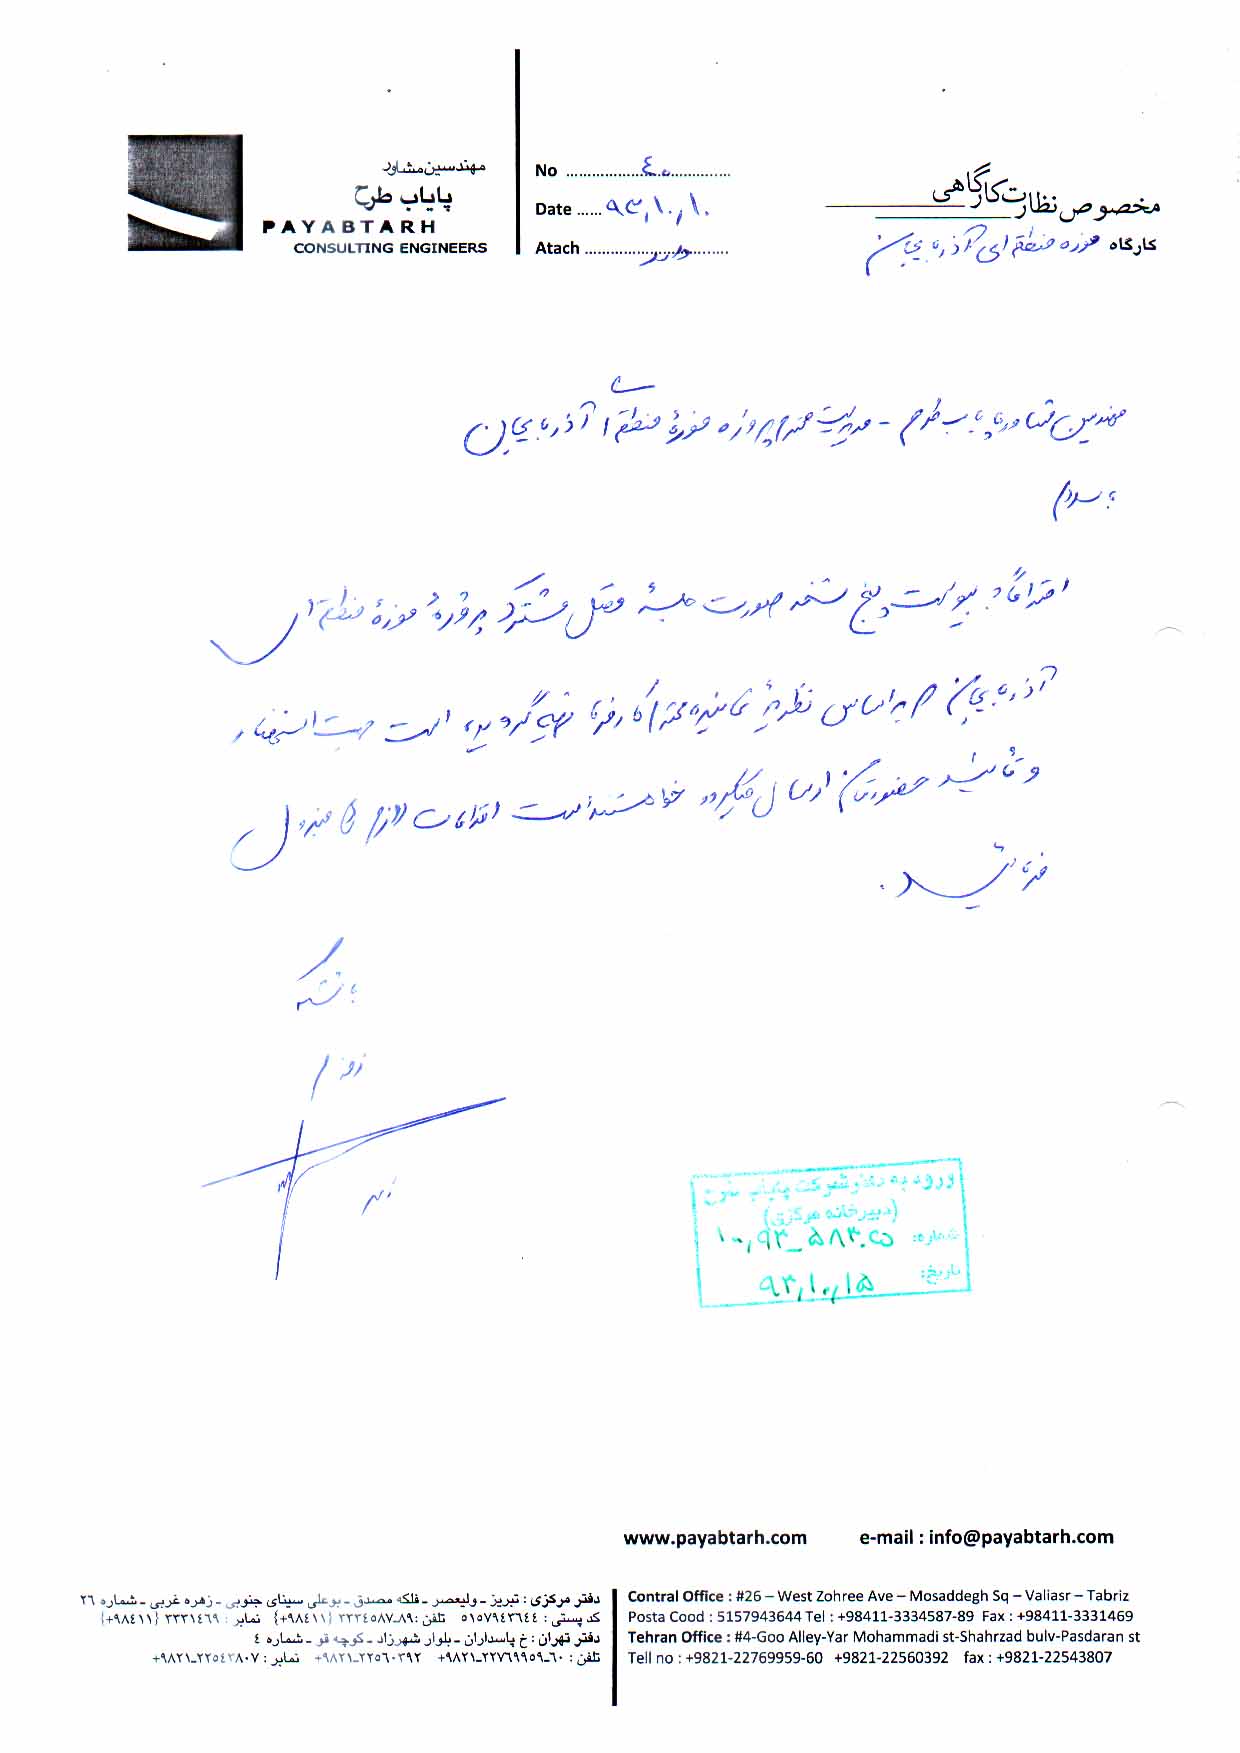 مهندسین مشاور
پایاب طرح
PAYABTARH
CONSULTING ENGINEERS
No ..................٤٠..............
Date ...... ٩٣,١٠,١٠
Atach .................... دارد .........
مخصوص نظارت کارگاهی
کارگاه موزه منطقه ای آذربایجان
مهندسین مشاور پایاب طرح - مدیریت محترم پروژه موزهٔ منطقه ای آذربایجان
با سلام
احتراماً به پیوست پنج نسخه صورت جلسهٔ فصل مشترک پروژهٔ موزهٔ منطقه ای
آذربایجان که بر اساس نظریهٔ نماینده محترم کارفرما تهیه گردیده است جهت استحضار
و تأیید حضورتان ارسال میگردد خواهشمند است اقدامات لازم را مبذول
فرمائید.
با تشکر
ورود به دفتر شرکت پایاب طرح
(دبیرخانه مرکزی)
شماره: ١٠,٩٣_٥٨٣.ص
تاریخ: ٩٣,١٠,١٥
www.payabtarh.com e-mail : info@payabtarh.com
دفتر مرکزی : تبریز - ولیعصر - فلکه مصدق - بوعلی سینای جنوبی - زهره غربی - شماره ٢٦
کد پستی : ٥١٥٧٩٤٣٦٤٤ تلفن : ٨٩-٣٣٣٤٥٨٧ (٩٨٤١١+) نمابر : ٣٣٣١٤٦٩ (٩٨٤١١+)
دفتر تهران : خ پاسداران - بلوار شهرزاد - کوچه قو - شماره ٤
تلفن : ٦٠-٢٢٧٦٩٩٥٩-٩٨٢١+ ٢٢٥٦٠٣٩٢-٩٨٢١+ نمابر : ٢٢٥٤٣٨٠٧-٩٨٢١+
Contral Office : #26 – West Zohree Ave – Mosaddegh Sq – Valiasr – Tabriz
Posta Cood : 5157943644 Tel : +98411-3334587-89 Fax : +98411-3331469
Tehran Office : #4-Goo Alley-Yar Mohammadi st-Shahrzad bulv-Pasdaran st
Tell no : +9821-22769959-60 +9821-22560392 fax : +9821-22543807